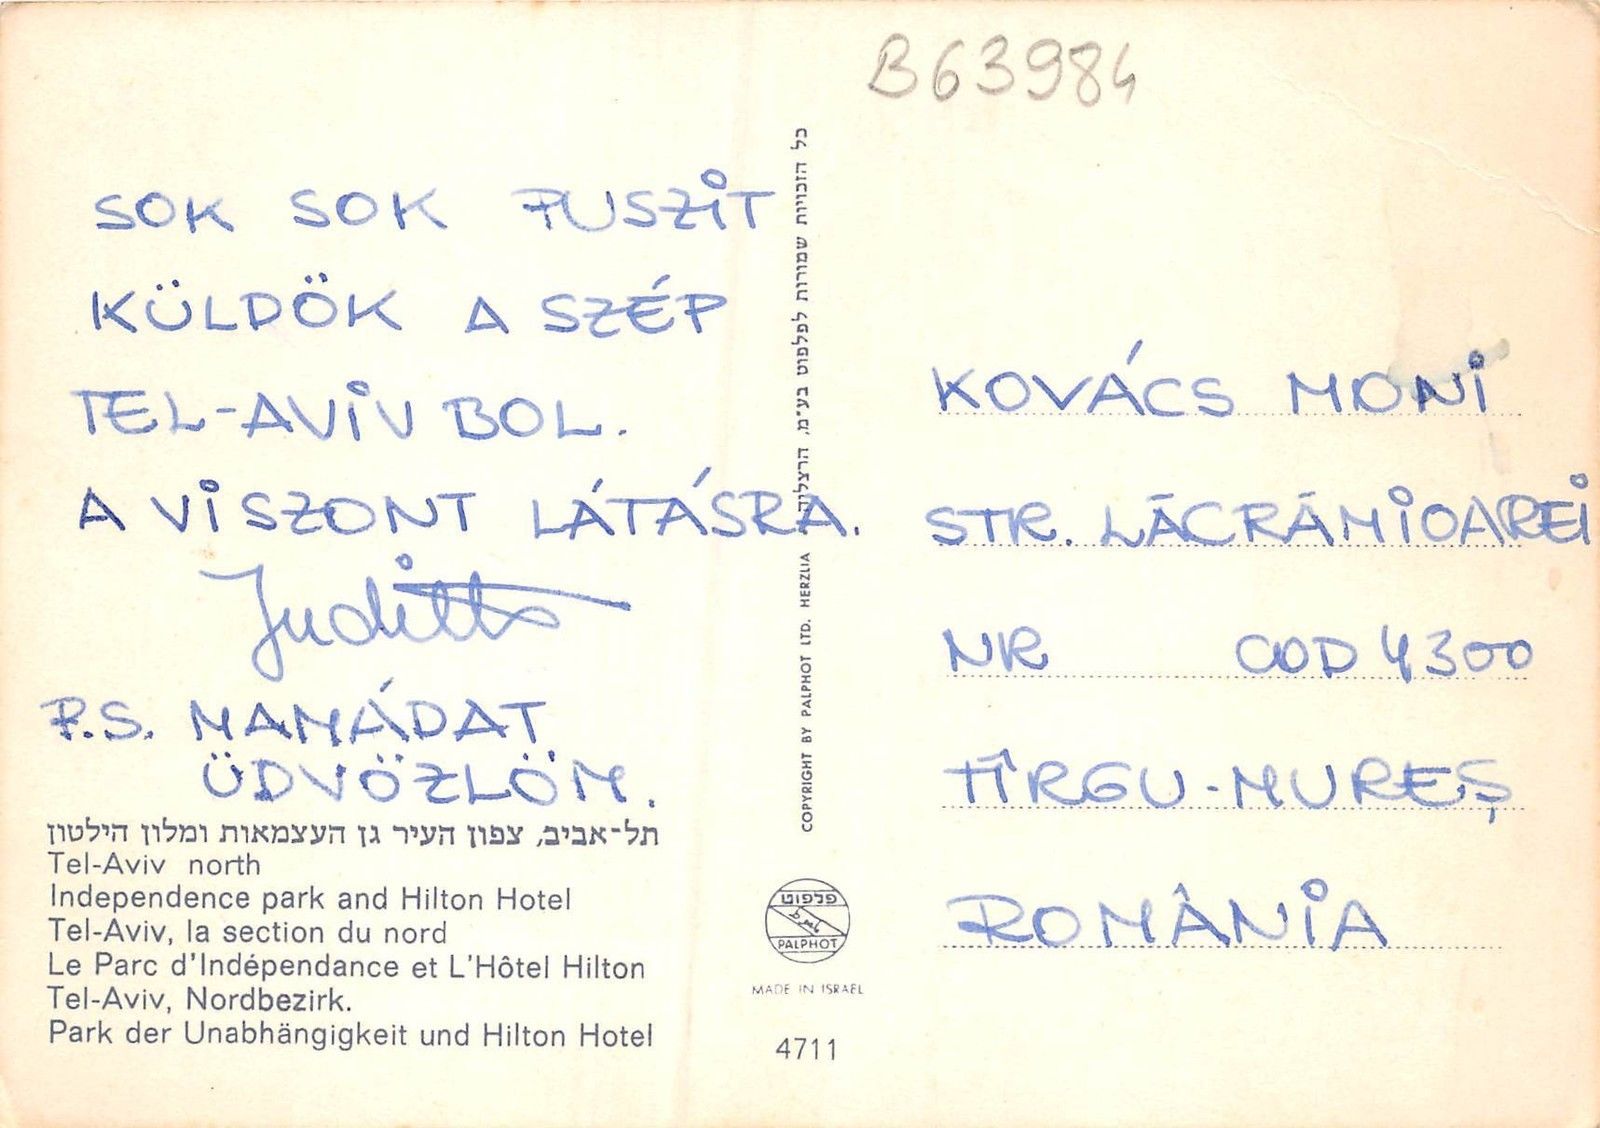 B63984
SOK SOK PUSZiT
KÜLDÖK A SZÉP
TEL-AViV BOL.
A ViSZONT LÁTÁSRA.
Juditto
P.S. MAMÁDAT
ÜDVÖZLÖM.
תל-אביב, צפון העיר גן העצמאות ומלון הילטון
Tel-Aviv north
Independence park and Hilton Hotel
Tel-Aviv, la section du nord
Le Parc d'Indépendance et L'Hôtel Hilton
Tel-Aviv, Nordbezirk.
Park der Unabhängigkeit und Hilton Hotel
כל הזכויות שמורות לפלפוט בע"מ, הרצליה
COPYRIGHT BY PALPHOT LTD. HERZLIA
פלפוט
PALPHOT
MADE IN ISRAEL
4711
KOVÁCS MONi
STR. LĀCRĀMiOAREi
NR COD 4300
TÎRGU-MUREȘ
ROMÂNiA